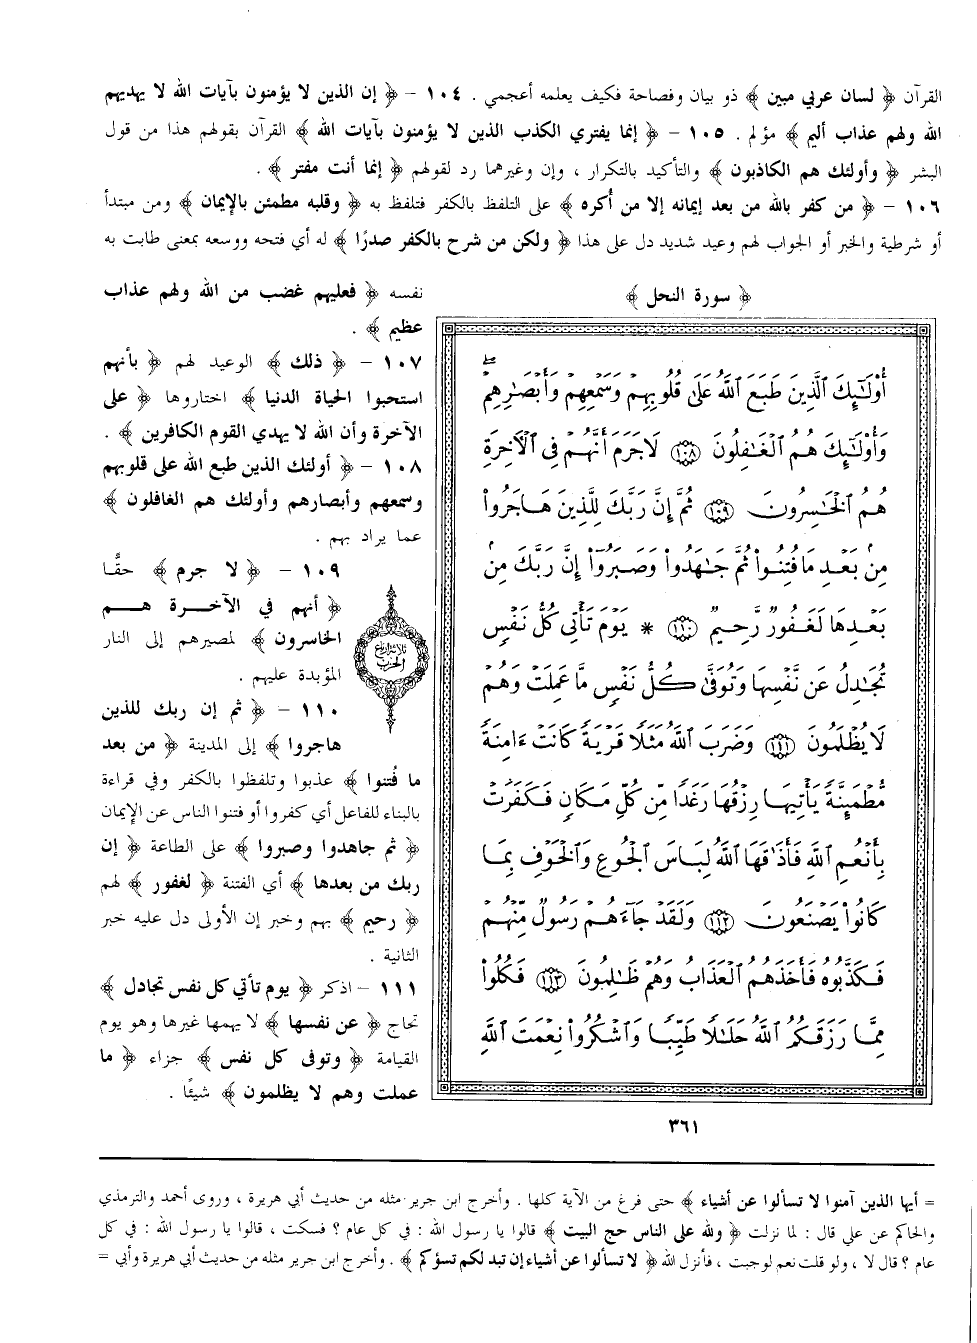 القرآن ﴿ لسان عربي مبين ﴾ ذو بيان وفصاحة فكيف يعلمه أعجمي . ١٠٤ - ﴿ إن الذين لا يؤمنون بآيات الله لا يهديهم
الله ولهم عذاب أليم ﴾ مؤلم . ١٠٥ - ﴿ إنما يفتري الكذب الذين لا يؤمنون بآيات الله ﴾ القرآن بقولهم هذا من قول
البشر ﴿ وأولئك هم الكاذبون ﴾ والتأكيد بالتكرار ، وإن وغيرهما رد لقولهم ﴿ إنما أنت مفتر ﴾ .
١٠٦ - ﴿ من كفر بالله من بعد إيمانه إلا من أكره ﴾ على التلفظ بالكفر فتلفظ به ﴿ وقلبه مطمئن بالإيمان ﴾ ومن مبتدأ
أو شرطية والخبر أو الجواب لهم وعيد شديد دل على هذا ﴿ ولكن من شرح بالكفر صدرًا ﴾ له أي فتحه ووسعه بمعنى طابت به
﴿ سورة النحل ﴾
أُوْلَٰٓئِكَ ٱلَّذِينَ طَبَعَ ٱللَّهُ عَلَىٰ قُلُوبِهِمْ وَسَمْعِهِمْ وَأَبْصَٰرِهِمْ ۖ
وَأُوْلَٰٓئِكَ هُمُ ٱلْغَٰفِلُونَ ١٠٨ لَا جَرَمَ أَنَّهُمْ فِي ٱلْأٓخِرَةِ
هُمُ ٱلْخَٰسِرُونَ ١٠٩ ثُمَّ إِنَّ رَبَّكَ لِلَّذِينَ هَاجَرُوا۟
مِنۢ بَعْدِ مَا فُتِنُوا۟ ثُمَّ جَٰهَدُوا۟ وَصَبَرُوٓا۟ إِنَّ رَبَّكَ مِنۢ
بَعْدِهَا لَغَفُورٌ رَّحِيمٌ ١١٠ * يَوْمَ تَأْتِي كُلُّ نَفْسٍ
تُجَٰدِلُ عَن نَّفْسِهَا وَتُوَفَّىٰ كُلُّ نَفْسٍ مَّا عَمِلَتْ وَهُمْ
لَا يُظْلَمُونَ ١١١ وَضَرَبَ ٱللَّهُ مَثَلًا قَرْيَةً كَانَتْ ءَامِنَةً
مُّطْمَئِنَّةً يَأْتِيهَا رِزْقُهَا رَغَدًا مِّن كُلِّ مَكَانٍ فَكَفَرَتْ
بِأَنْعُمِ ٱللَّهِ فَأَذَٰقَهَا ٱللَّهُ لِبَاسَ ٱلْجُوعِ وَٱلْخَوْفِ بِمَا
كَانُوا۟ يَصْنَعُونَ ١١٢ وَلَقَدْ جَآءَهُمْ رَسُولٌ مِّنْهُمْ
فَكَذَّبُوهُ فَأَخَذَهُمُ ٱلْعَذَابُ وَهُمْ ظَٰلِمُونَ ١١٣ فَكُلُوا۟
مِمَّا رَزَقَكُمُ ٱللَّهُ حَلَٰلًا طَيِّبًا وَٱشْكُرُوا۟ نِعْمَتَ ٱللَّهِ
٣٦١
نفسه ﴿ فعليهم غضب من الله ولهم عذاب
عظيم ﴾ .
١٠٧ - ﴿ ذلك ﴾ الوعيد لهم ﴿ بأنهم
استحبوا الحياة الدنيا ﴾ اختاروها ﴿ على
الآخرة وأن الله لا يهدي القوم الكافرين ﴾ .
١٠٨ - ﴿ أولئك الذين طبع الله على قلوبهم
وسمعهم وأبصارهم وأولئك هم الغافلون ﴾
عما يراد بهم .
١٠٩ - ﴿ لا جرم ﴾ حقًّا
﴿ أنهم في الآخرة هم
الخاسرون ﴾ لمصيرهم إلى النار
المؤبدة عليهم .
ثلاثة أرباع
الحزب
١١٠ - ﴿ ثم إن ربك للذين
هاجروا ﴾ إلى المدينة ﴿ من بعد
ما فُتنوا ﴾ عذبوا وتلفظوا بالكفر وفي قراءة
بالبناء للفاعل أي كفروا أو فتنوا الناس عن الإيمان
﴿ ثم جاهدوا وصبروا ﴾ على الطاعة ﴿ إن
ربك من بعدها ﴾ أي الفتنة ﴿ لغفور ﴾ لهم
﴿ رحيم ﴾ بهم وخبر إن الأولى دل عليه خبر
الثانية .
١١١ - اذكر ﴿ يوم تأتي كل نفس تجادل ﴾
تحاج ﴿ عن نفسها ﴾ لا يهمها غيرها وهو يوم
القيامة ﴿ وتوفى كل نفس ﴾ جزاء ﴿ ما
عملت وهم لا يظلمون ﴾ شيئًا .
= أيها الذين آمنوا لا تسألوا عن أشياء ﴾ حتى فرغ من الآية كلها . وأخرج ابن جرير مثله من حديث أبي هريرة ، وروى أحمد والترمذي
والحاكم عن علي قال : لما نزلت ﴿ ولله على الناس حج البيت ﴾ قالوا يا رسول الله : في كل عام ؟ فسكت ، قالوا يا رسول الله : في كل
عام ؟ قال لا ، ولو قلت نعم لوجبت ، فأنزل الله ﴿ لا تسألوا عن أشياء إن تبد لكم تسؤكم ﴾ . وأخرج ابن جرير مثله من حديث أبي هريرة وأبي =